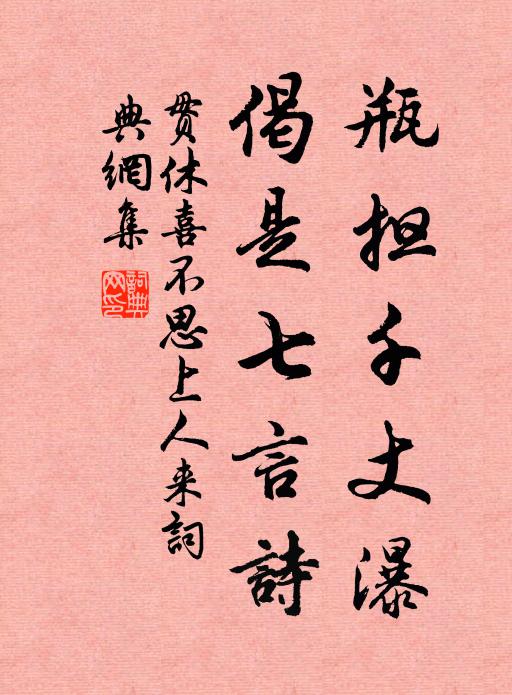 瓶担千丈瀑
偈是七言詩
贯休喜不思上人来詞
典網集
詞典
网印